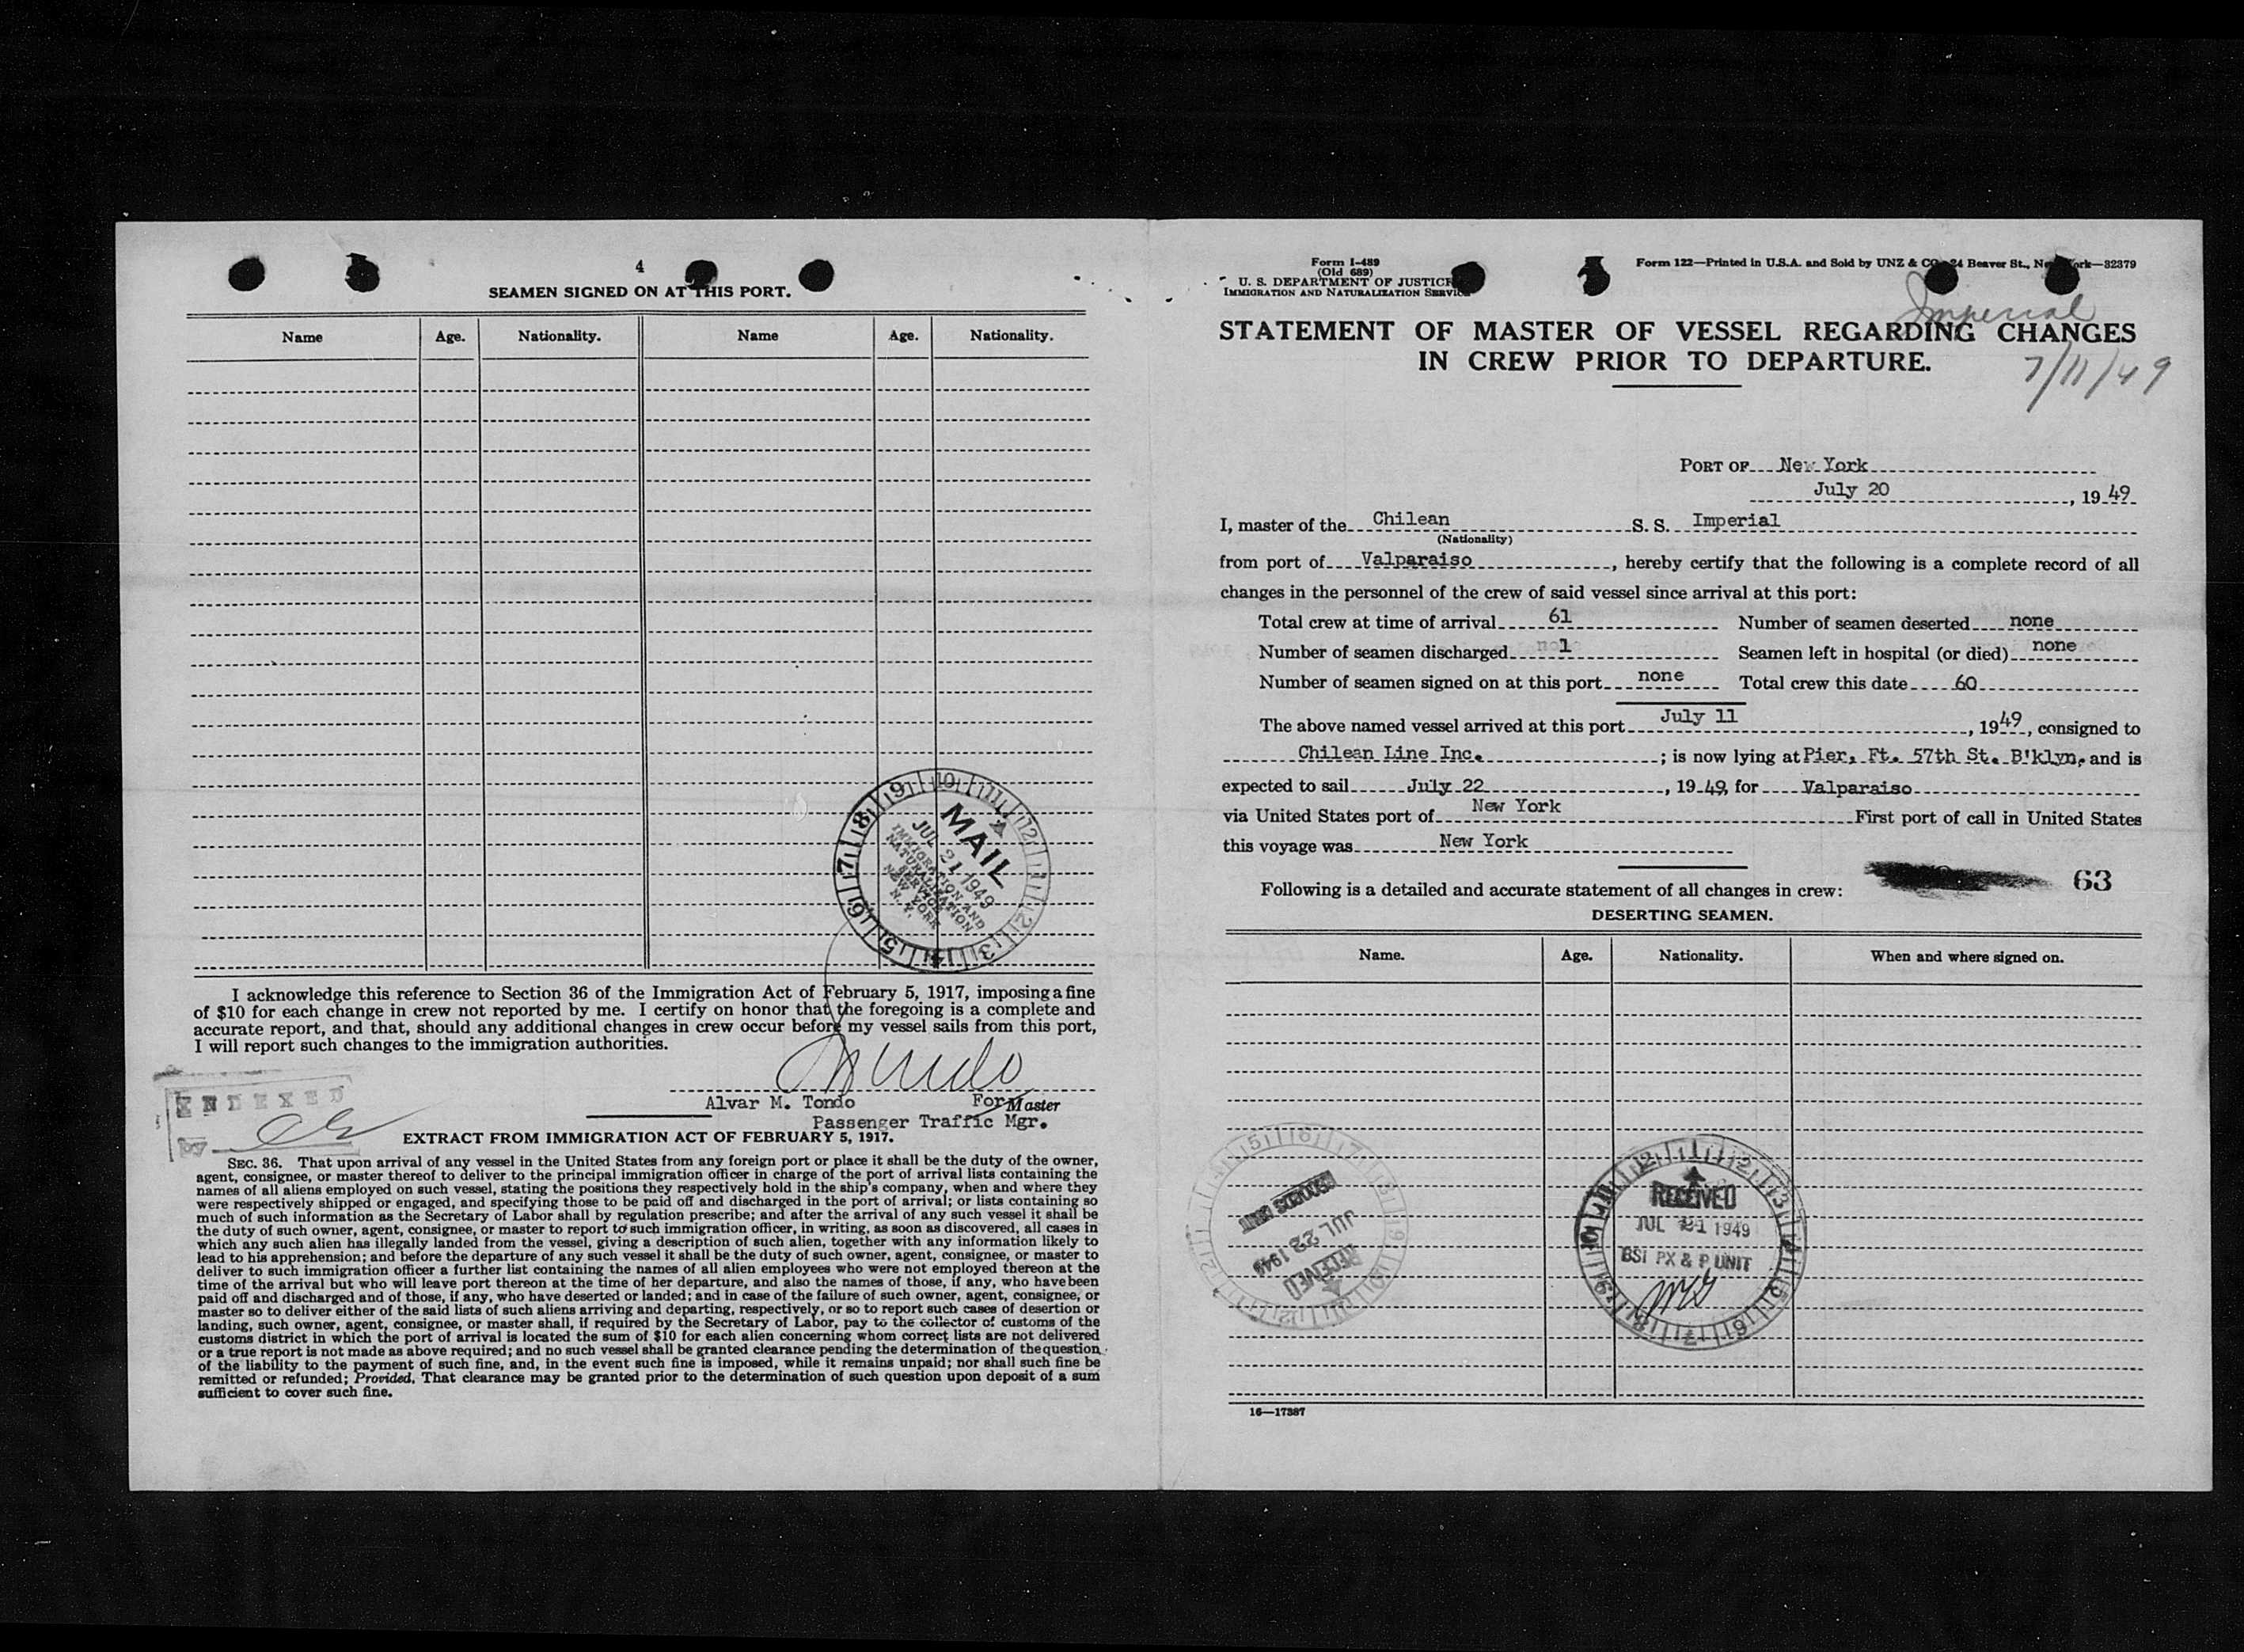 4
SEAMEN SIGNED ON AT THIS PORT.
Name Age. Nationality. Name Age. Nationality.
MAIL
JUL 21 1949
IMMIGRATION AND
NATURALIZATION
SERVICE
NEW YORK
N. Y.
I acknowledge this reference to Section 36 of the Immigration Act of February 5, 1917, imposing a fine
of $10 for each change in crew not reported by me. I certify on honor that the foregoing is a complete and
accurate report, and that, should any additional changes in crew occur before my vessel sails from this port,
I will report such changes to the immigration authorities.
INDEXED
Alvar M. Tondo For Master
Passenger Traffic Mgr.
EXTRACT FROM IMMIGRATION ACT OF FEBRUARY 5, 1917.
SEC. 36. That upon arrival of any vessel in the United States from any foreign port or place it shall be the duty of the owner,
agent, consignee, or master thereof to deliver to the principal immigration officer in charge of the port of arrival lists containing the
names of all aliens employed on such vessel, stating the positions they respectively hold in the ship's company, when and where they
were respectively shipped or engaged, and specifying those to be paid off and discharged in the port of arrival; or lists containing so
much of such information as the Secretary of Labor shall by regulation prescribe; and after the arrival of any such vessel it shall be
the duty of such owner, agent, consignee, or master to report to such immigration officer, in writing, as soon as discovered, all cases in
which any such alien has illegally landed from the vessel, giving a description of such alien, together with any information likely to
lead to his apprehension; and before the departure of any such vessel it shall be the duty of such owner, agent, consignee, or master to
deliver to such immigration officer a further list containing the names of all alien employees who were not employed thereon at the
time of the arrival but who will leave port thereon at the time of her departure, and also the names of those, if any, who have been
paid off and discharged and of those, if any, who have deserted or landed; and in case of the failure of such owner, agent, consignee, or
master so to deliver either of the said lists of such aliens arriving and departing, respectively, or so to report such cases of desertion or
landing, such owner, agent, consignee, or master shall, if required by the Secretary of Labor, pay to the collector of customs of the
customs district in which the port of arrival is located the sum of $10 for each alien concerning whom correct lists are not delivered
or a true report is not made as above required; and no such vessel shall be granted clearance pending the determination of the question
of the liability to the payment of such fine, and, in the event such fine is imposed, while it remains unpaid; nor shall such fine be
remitted or refunded; Provided, That clearance may be granted prior to the determination of such question upon deposit of a sum
sufficient to cover such fine.
Form I-489
(Old 689)
U. S. DEPARTMENT OF JUSTICE
IMMIGRATION AND NATURALIZATION SERVICE
Form 122—Printed in U.S.A. and Sold by UNZ & CO., 24 Beaver St., New York—32379
Imperial
STATEMENT OF MASTER OF VESSEL REGARDING CHANGES
IN CREW PRIOR TO DEPARTURE.
7/11/49
PORT OF New York
July 20, 1949
I, master of the Chilean S. S. Imperial
(Nationality)
from port of Valparaiso, hereby certify that the following is a complete record of all
changes in the personnel of the crew of said vessel since arrival at this port:
Total crew at time of arrival 61 Number of seamen deserted none
Number of seamen discharged 1 Seamen left in hospital (or died) none
Number of seamen signed on at this port none Total crew this date 60
The above named vessel arrived at this port July 11, 1949, consigned to
Chilean Line Inc.; is now lying at Pier, Ft. 57th St. B'klyn, and is
expected to sail July 22, 1949, for Valparaiso
via United States port of New York First port of call in United States
this voyage was New York
63
Following is a detailed and accurate statement of all changes in crew:
DESERTING SEAMEN.
Name. Age. Nationality. When and where signed on.
RECEIVED
JUL 21 1949
BSI PX & P UNIT
JUL 22 1949
RECEIVED
16—17387